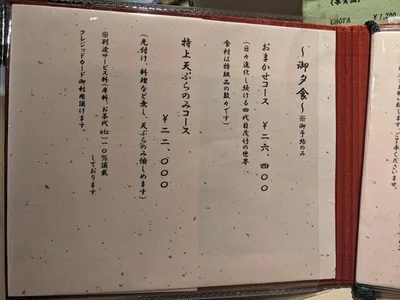 ～御夕食～※御予約のみ
おまかせコース ￥二六、四〇〇
(日々進化し続ける四代目茂竹の世界
食材は特級品の数々です)
特上天ぷらのみコース
￥二二、〇〇〇
(先付け、料理など無し、天ぷらのみ愉しめます)
※別途サービス料(席料、お茶代etc)一〇％頂戴
しております
クレジットカード御利用頂けます。
CHOYA
￥1,200